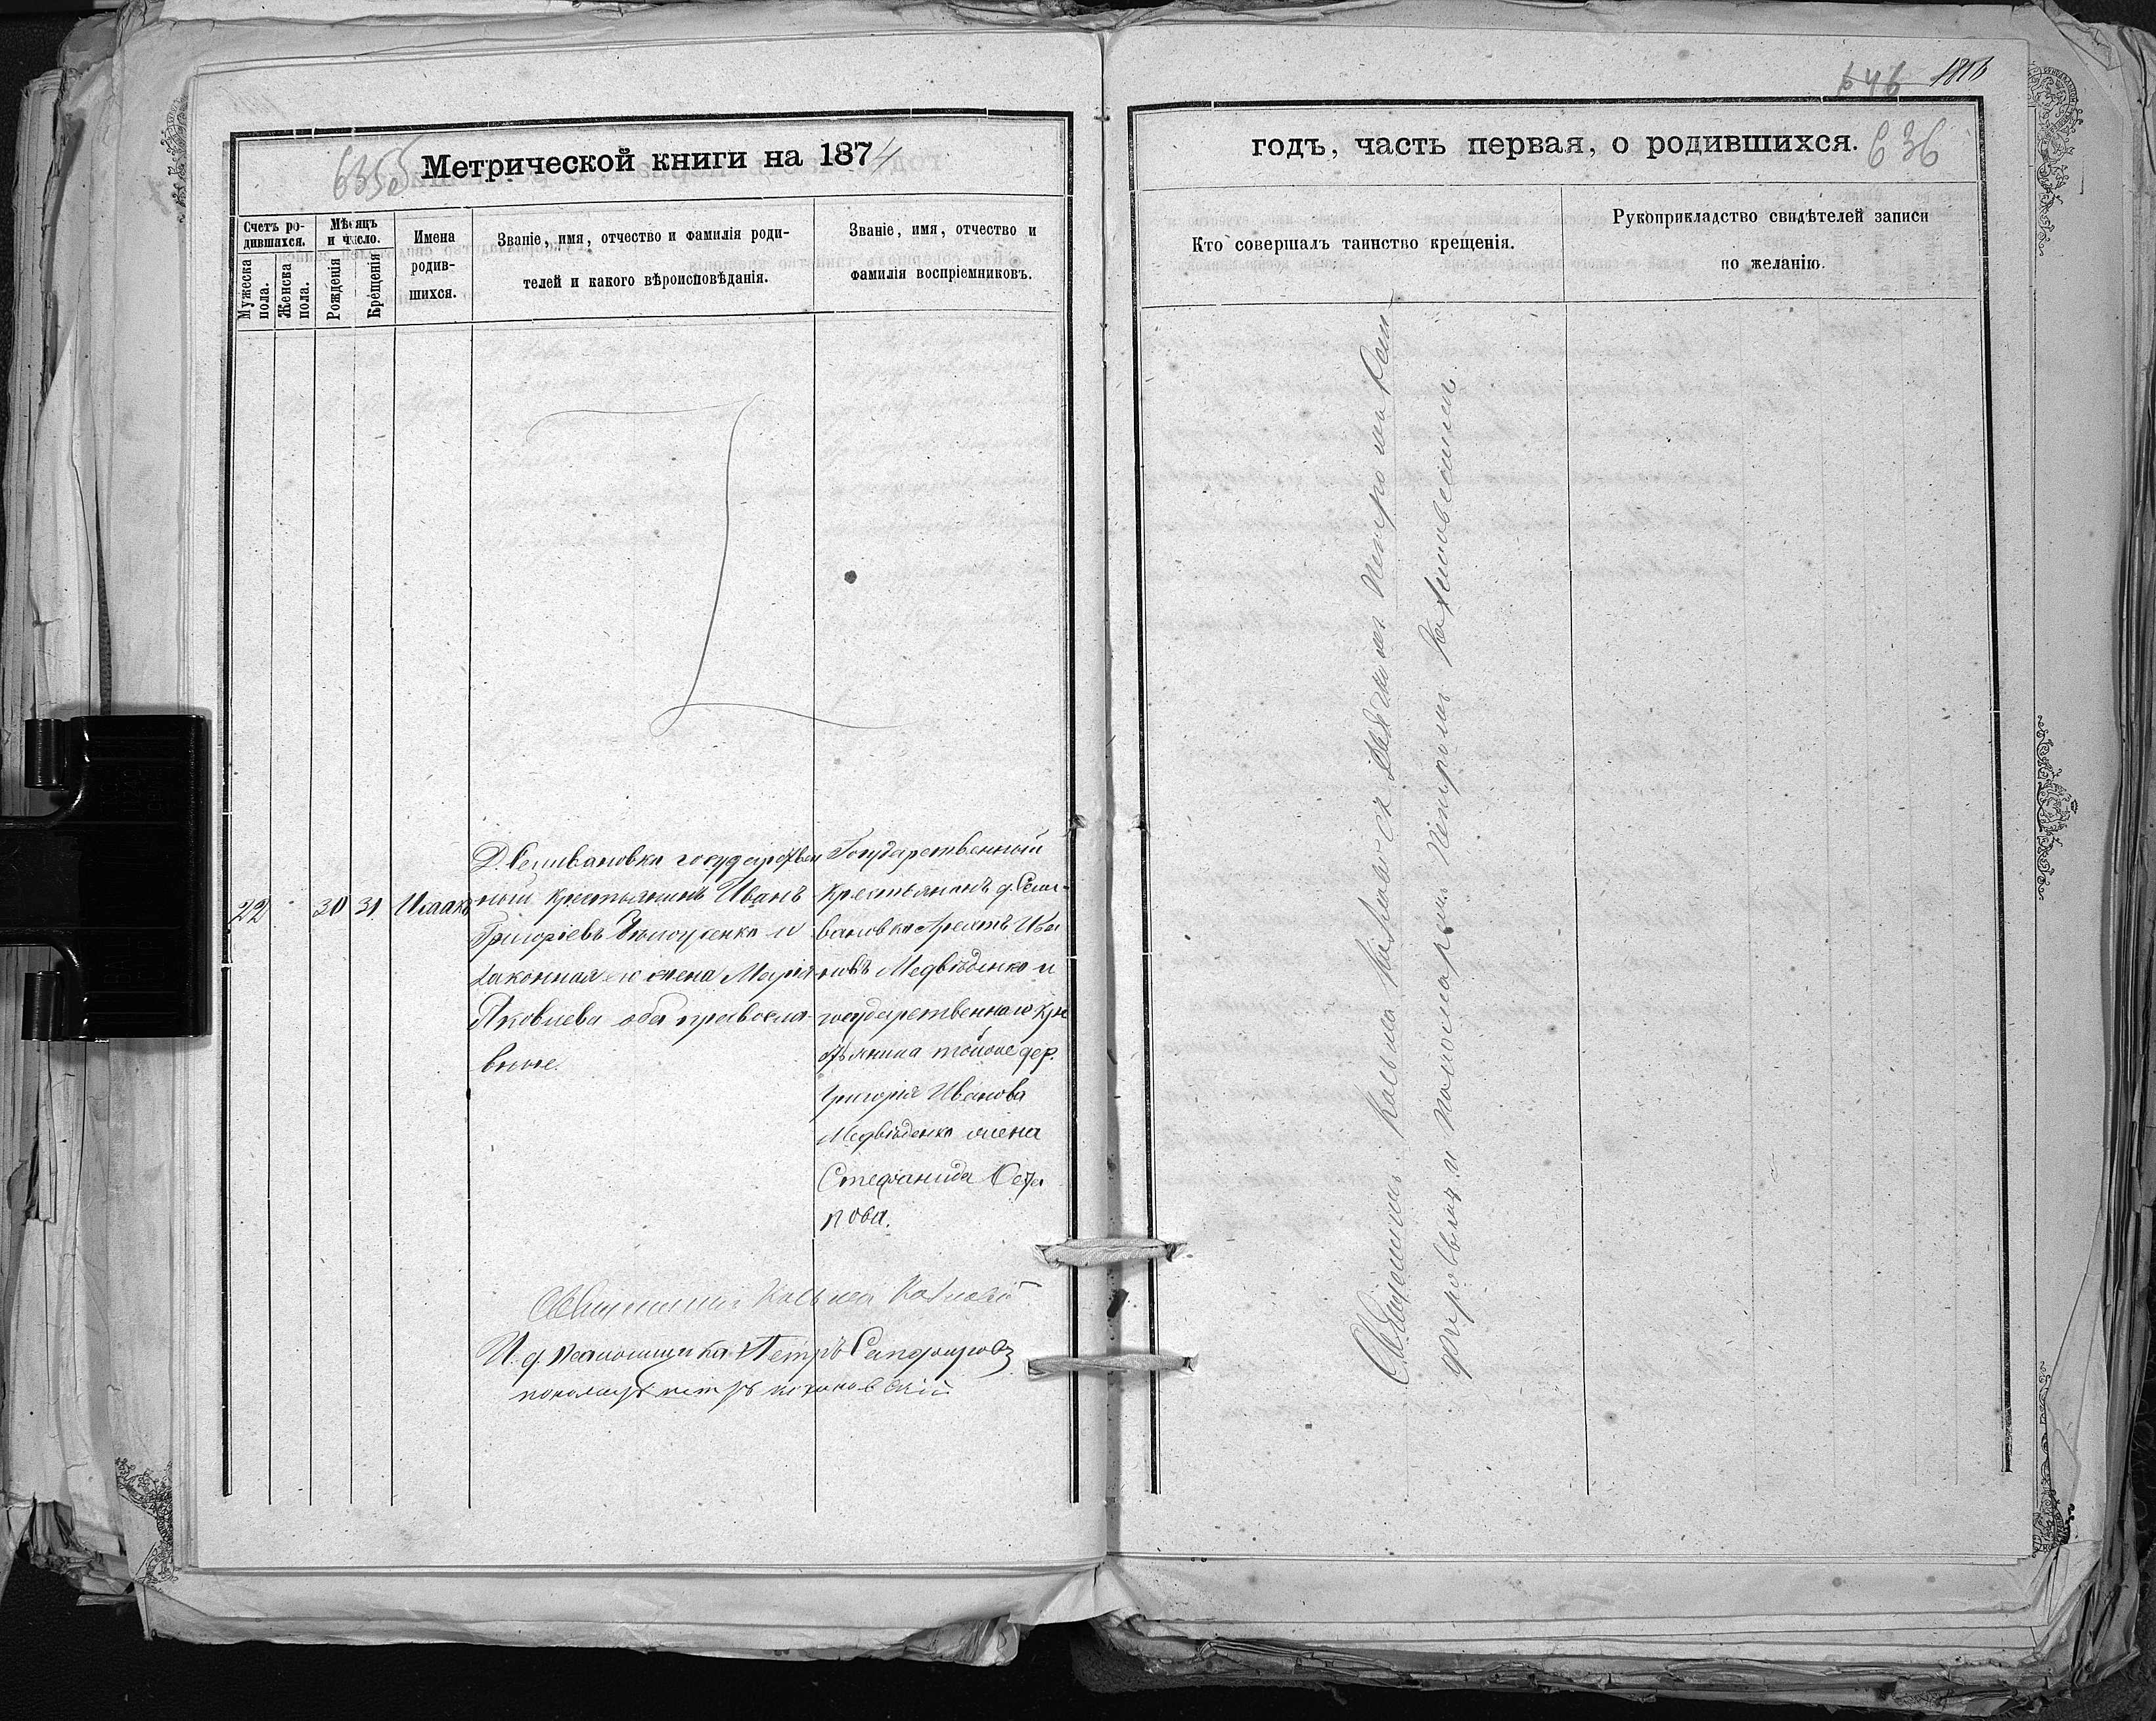 646 1816
6355 Метрической книги на 1874
Счетъ ро-
дившихся.
Мужеска
пола.
Женска
пола.
Мѣсяцъ
и число.
Рожденія
Крещенія
Имена
родив-
шихся.
Званіе, имя, отчество и фамилія роди-
телей и какого вѣроисповѣданія.
Званіе, имя, отчество и
фамилія воспріемниковъ.
22
30
31
Исаакъ
Д. Селивановка государствен
ный крестьянинъ Иванъ
Григоріевъ и
законная его жена Марія
Яковлева оба правосла-
вные.
Государственный
крестьянинъ д. Сели-
вановки Ива
новъ Медвѣденко и
государственнаго кре
стьянина тойже дер.
Григорія Иванова
Медвѣденка жена
Стефанида
пова.
Священникъ Косьма
И. д. псаломщика Петръ
пономарь петръ
годъ, часть первая, о родившихся. 636
Кто совершалъ таинство крещенія.
Рукоприкладство свидѣтелей записи
по желанію.
Священникъ Косьма съ дьячкомъ Петромъ
и пономаремъ Петромъ